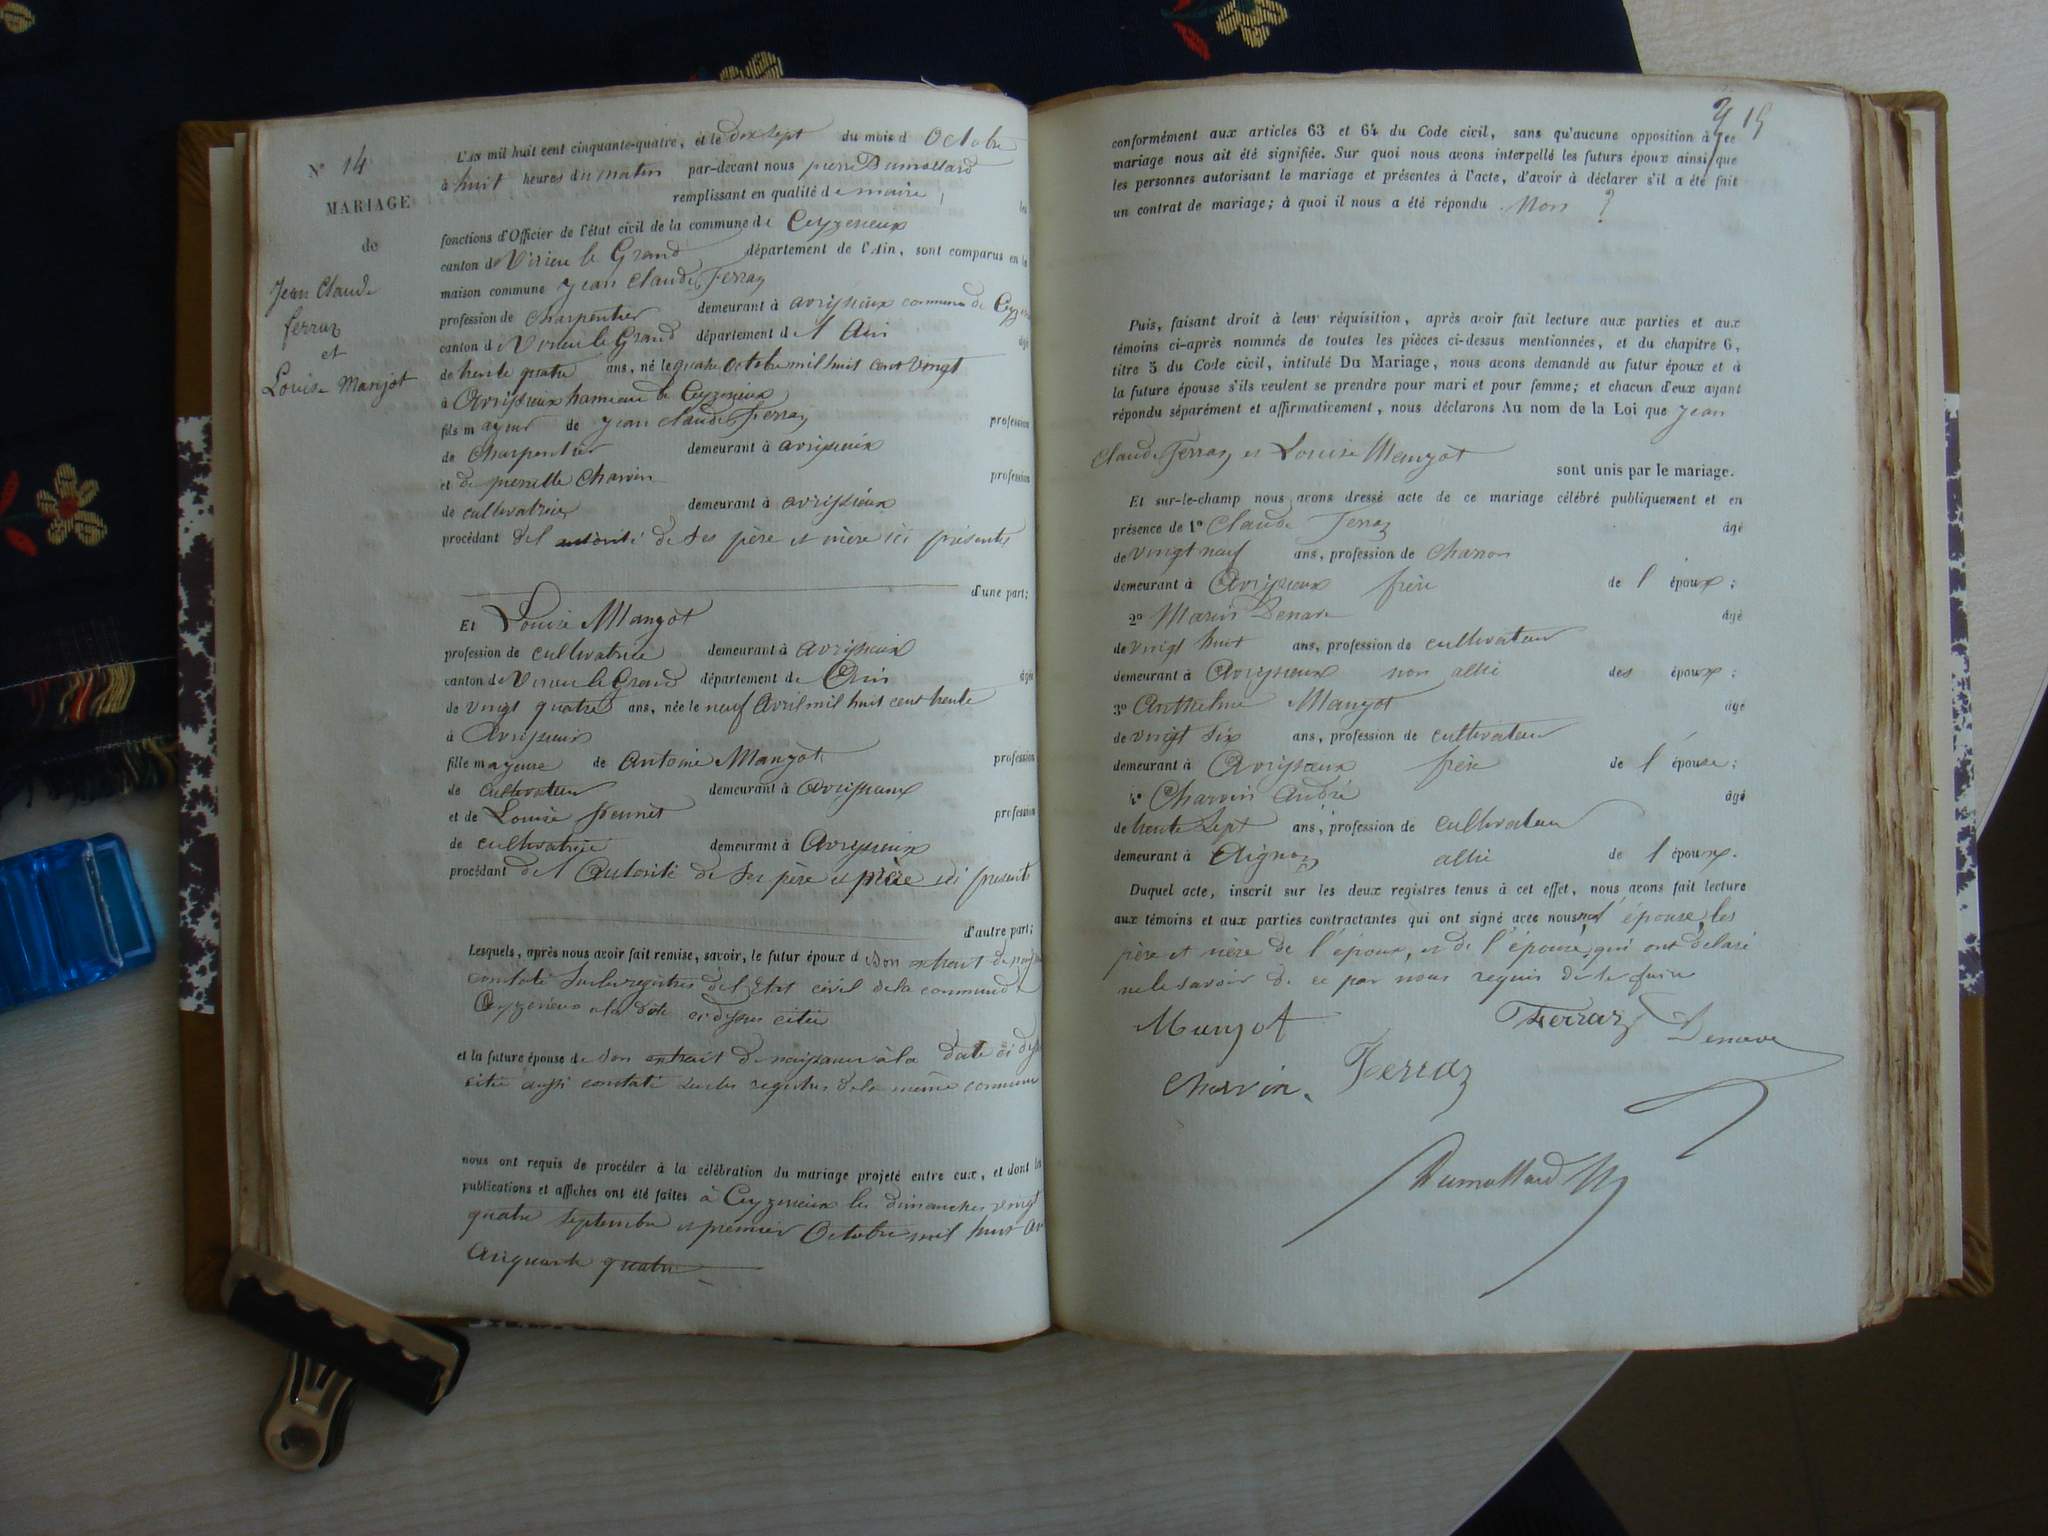 N° 14
MARIAGE
de
Jean Claude
ferraz
et
Louise Manjot
L'AN mil huit cent cinquante-quatre, et le dix sept du mois d Octobre
à huit heures du matin par-devant nous pierre Dumollard
remplissant en qualité de maire les
fonctions d'Officier de l'état civil de la commune de Ceyzerieux
canton de Virieu le Grand département de l'Ain, sont comparus en la
maison commune Jean Claude Ferraz
profession de Charpentier demeurant à avrissieux commune de
canton d Virieu le Grand département de l Ain âgé
de trente quatre ans, né le quatre octobre mil huit cent vingt
à Avrissieux hameau de Ceyzerieux
fils mayeur de Jean Claude Ferraz profession
de Charpentier demeurant à avrissieux
et de pierrette Charvin profession
de cultivatrice demeurant à avrissieux
procédant del autorité de Ses père et mère ici présents
d'une part;
Et Louise Mangot
profession de cultivatrice demeurant à avrissieux
canton de Virieu le Grand département de Ain âgée
de vingt quatre ans, née le neuf Avril mil huit cent trente
à Avrissieux
fille mayeure de Antoine Mangot profession
de cultivateur demeurant à avrissieux
et de Louise profession
de cultivatrice demeurant à Avrissieux
procédant de l Autorité de Ses père et mère ici presents
d'autre part;
Lesquels, après nous avoir fait remise, savoir, le futur époux d Son extrait de
constaté Sur les registres del Etat civil de la commune de
Ceyzerieux a la date ci dessus citée
et la future épouse de Son extrait de naissance à la date ci
citée aussi constaté sur les registres de la même commune
nous ont requis de procéder à la célébration du mariage projeté entre eux, et dont les
publications et affiches ont été faites à Ceyzerieux les dimanches vingt
quatre septembre et premier Octobre mil huit
cinquante quatre
19
conformément aux articles 63 et 64 du Code civil, sans qu'aucune opposition à ce
mariage nous ait été signifiée. Sur quoi nous avons interpellé les futurs époux ainsi que
les personnes autorisant le mariage et présentes à l'acte, d'avoir à déclarer s'il a été fait
un contrat de mariage; à quoi il nous a été répondu Non
Puis, faisant droit à leur réquisition, après avoir fait lecture aux parties et aux
témoins ci-après nommés de toutes les pièces ci-dessus mentionnées, et du chapitre 6,
titre 5 du Code civil, intitulé Du Mariage, nous avons demandé au futur époux et à
la future épouse s'ils veulent se prendre pour mari et pour femme; et chacun d'eux ayant
répondu séparément et affirmativement, nous déclarons Au nom de la Loi que Jean
Claude Ferraz et Louise Mangot
sont unis par le mariage.
Et sur-le-champ nous avons dressé acte de ce mariage célébré publiquement et en
présence de 1° Claude Ferraz âgé
de vingt neuf ans, profession de Charron
demeurant à Avrissieux frère de l époux;
2° Marin Denave âgé
de vingt huit ans, profession de cultivateur
demeurant à Avrissieux non allié des époux;
3° Anthelme Mangot âgé
de vingt six ans, profession de cultivateur
demeurant à Avrissieux frère de l épouse;
4° Charvin André âgé
de trente Sept ans, profession de cultivateur
demeurant à Aignoz allié de l époux.
Duquel acte, inscrit sur les deux registres tenus à cet effet, nous avons fait lecture
aux témoins et aux parties contractantes qui ont signé avec nous, l'épouse, les
père et mère de l'époux, et de l'épouse, qui ont déclaré
ne le savoir de ce par nous requis de le faire
Manjot Ferraz Denave
Charvin. Ferraz
Dumollard